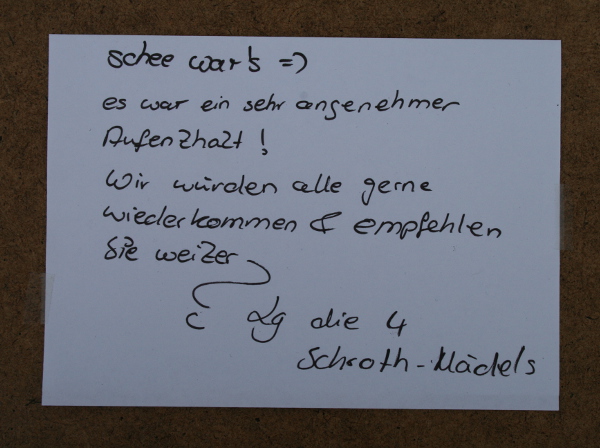 schee war's =)
es war ein sehr angenehmer
Aufenthalt!
Wir würden alle gerne
wiederkommen & empfehlen
Sie weiter
Lg die 4
Schroth-Mädels